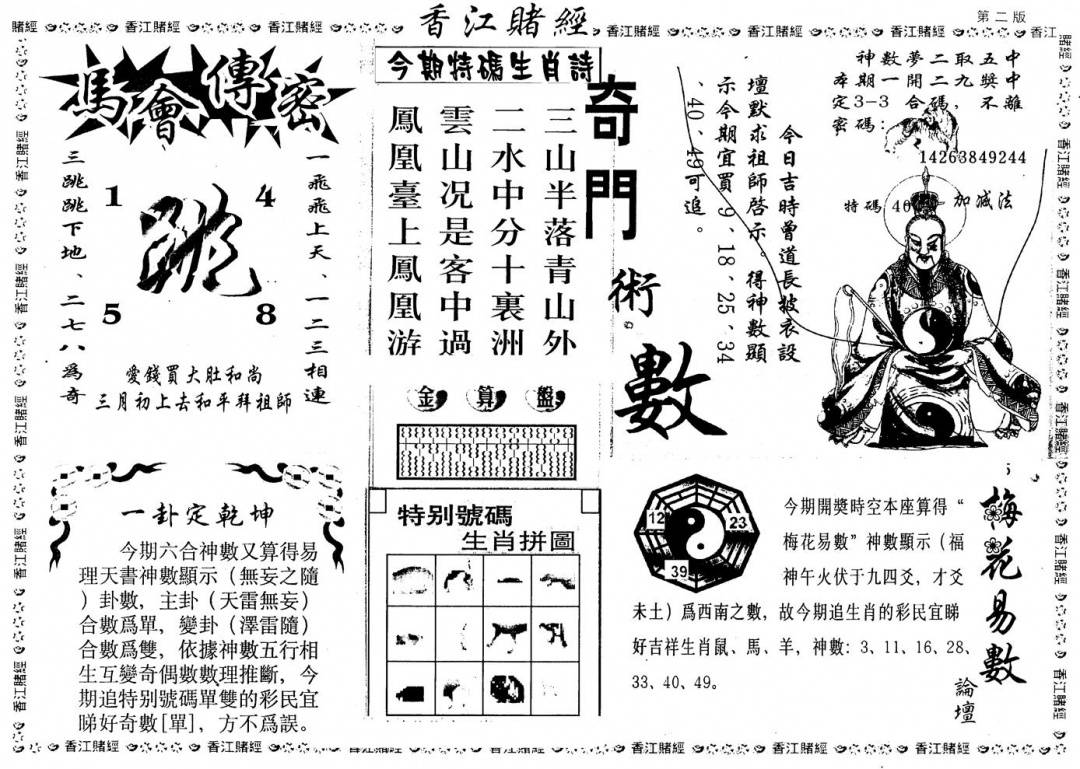 香江賭經
第二版
馬會傳密
一飛飛上天、一二三相連
三跳跳下地、二七八爲奇
1
4
跳
5
8
愛錢買大肚和尚
三月初上去和平拜祖師
一卦定乾坤
今期六合神數又算得易
理天書神數顯示（無妄之隨
）卦數，主卦（天雷無妄）
合數爲單，變卦（澤雷隨）
合數爲雙，依據神數五行相
生互變奇偶數數理推斷，今
期追特別號碼單雙的彩民宜
睇好奇數[單]，方不爲誤。
今期特碼生肖詩
三山半落青山外
二水中分十裏洲
雲山况是客中過
鳳凰臺上鳳凰游
金算盤
特别號碼
生肖拼圖
奇門術數
今日吉時曾道長披衣設
壇默求祖師啓示。得神數顯
示今期宜買9、18、25、34
、40、49可追。
神數夢二取五中
本期一開二九獎中
定3-3合碼，不離
密碼：
14263849244
特碼40
加减法
12
23
39
梅花易數
論壇
今期開獎時空本座算得“
梅花易數”神數顯示（福
神午火伏于九四爻，才爻
未土）爲西南之數，故今期追生肖的彩民宜睇
好吉祥生肖鼠、馬、羊，神數：3、11、16、28、
33、40、49。